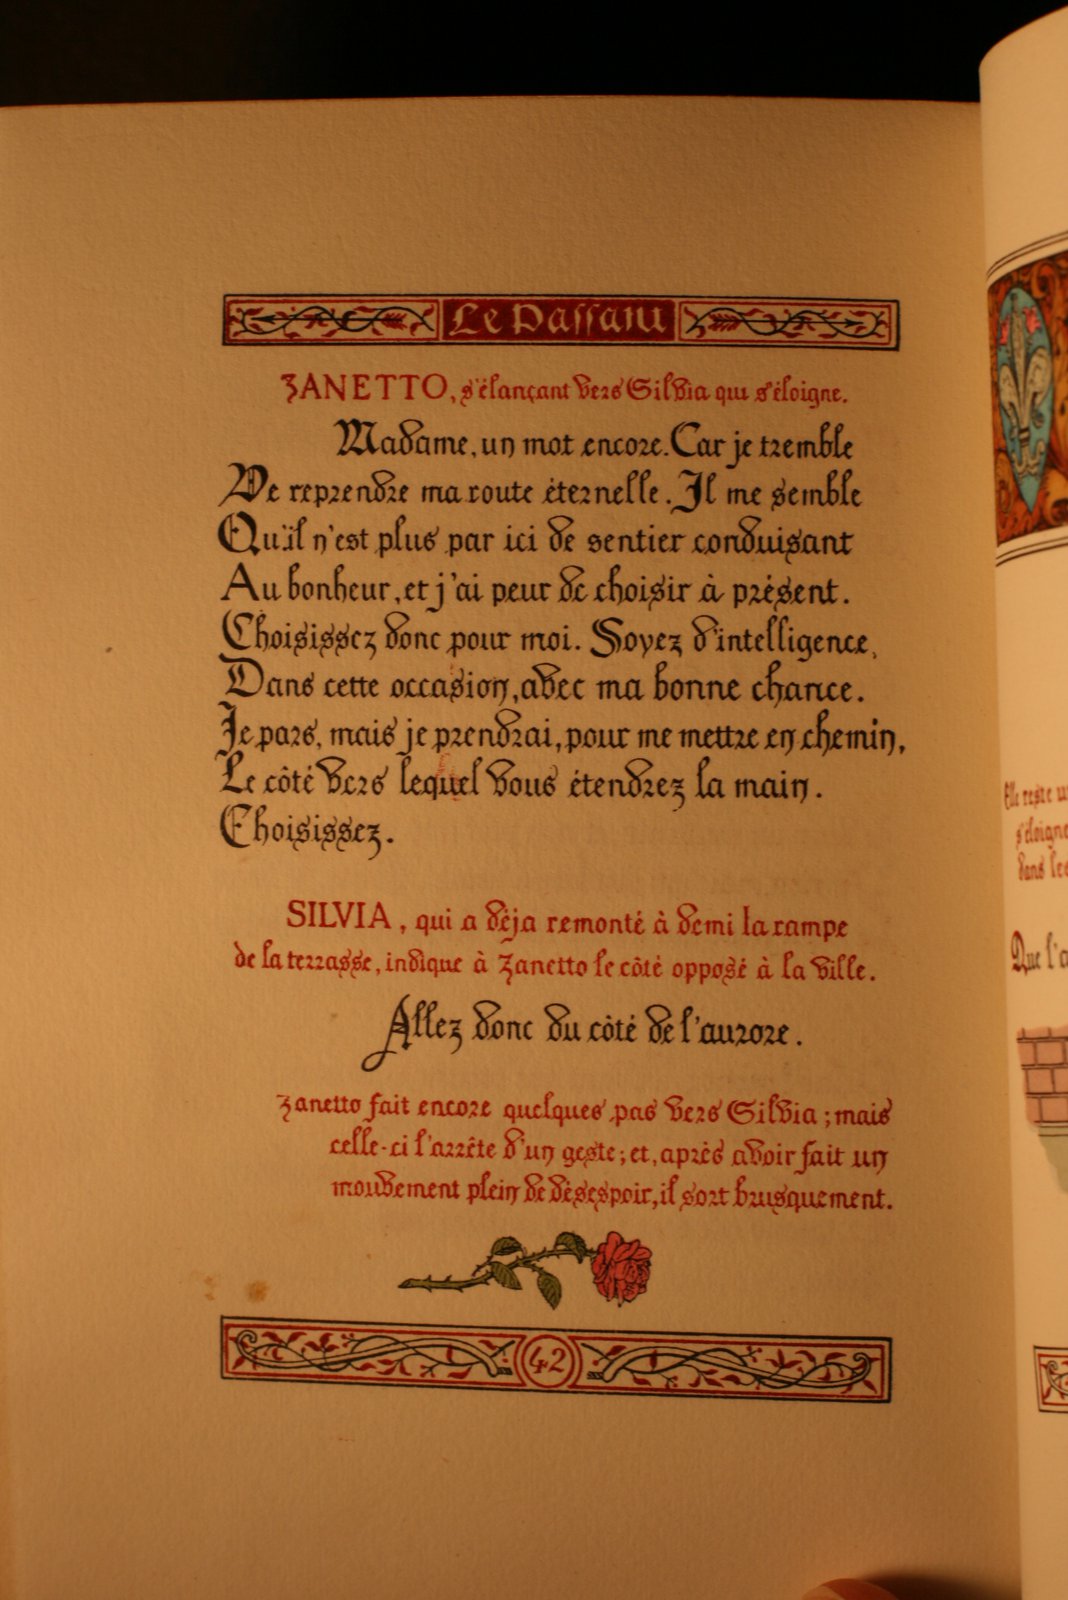 Le Passant
ZANETTO, s'élançant vers Silvia qui s'éloigne.
Madame, un mot encore. Car je tremble
De reprendre ma route éternelle. Il me semble
Qu'il n'est plus par ici de sentier conduisant
Au bonheur, et j'ai peur de choisir à présent.
Choisissez donc pour moi. Soyez d'intelligence,
Dans cette occasion, avec ma bonne chance.
Je pars, mais je prendrai, pour me mettre en chemin,
Le côté vers lequel vous étendrez la main.
Choisissez.
SILVIA, qui a déja remonté à demi la rampe
de la terrasse, indique à Zanetto le côté opposé à la ville.
Allez donc du côté de l'aurore.
Zanetto fait encore quelques pas vers Silvia; mais
celle-ci l'arrête d'un geste; et, après avoir fait un
mouvement plein de désespoir, il sort brusquement.
42
Elle reste
s'éloigne
dans les
Que l'a